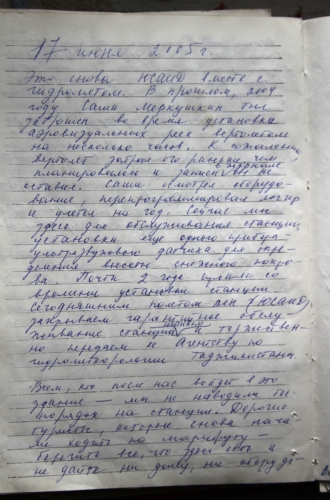 17 июня 2005 г.
Это снова ЮСАИД вместе с
гидрометом. В прошлом, 2004
году Саша Меркушкин был
заброшен во время установки
аэровизуальных реек вертолетом
на несколько часов. К сожалению
вертолет забрал его раньше, чем
планировалось и записи в журнале он не
оставил. Саша осмотрел оборудо-
вание, перепрограммировал логгер
и улетел на год. Сейчас мы
здесь для обслуживания станции,
установки еще одного прибора -
ультразвукового датчика для наблю-
дения высоты снежного покро-
ва. Почти 2 года прошло со
времени установки станции.
Сегодняшним полетом мы (ЮСАИД)
закрываем гарантийное обслу-
живание станции и торжествен-
но передаем ее Агентству по
гидрометеорологии Таджикистана.
Всем, кто после нас войдет в это
здание — мы не наводили бес-
порядок на станции. Дорогие
туристы, которые снова нача-
ли ходить по маршруту —
берегите все, что здесь есть и
не дайте ни дому, ни оборудо-